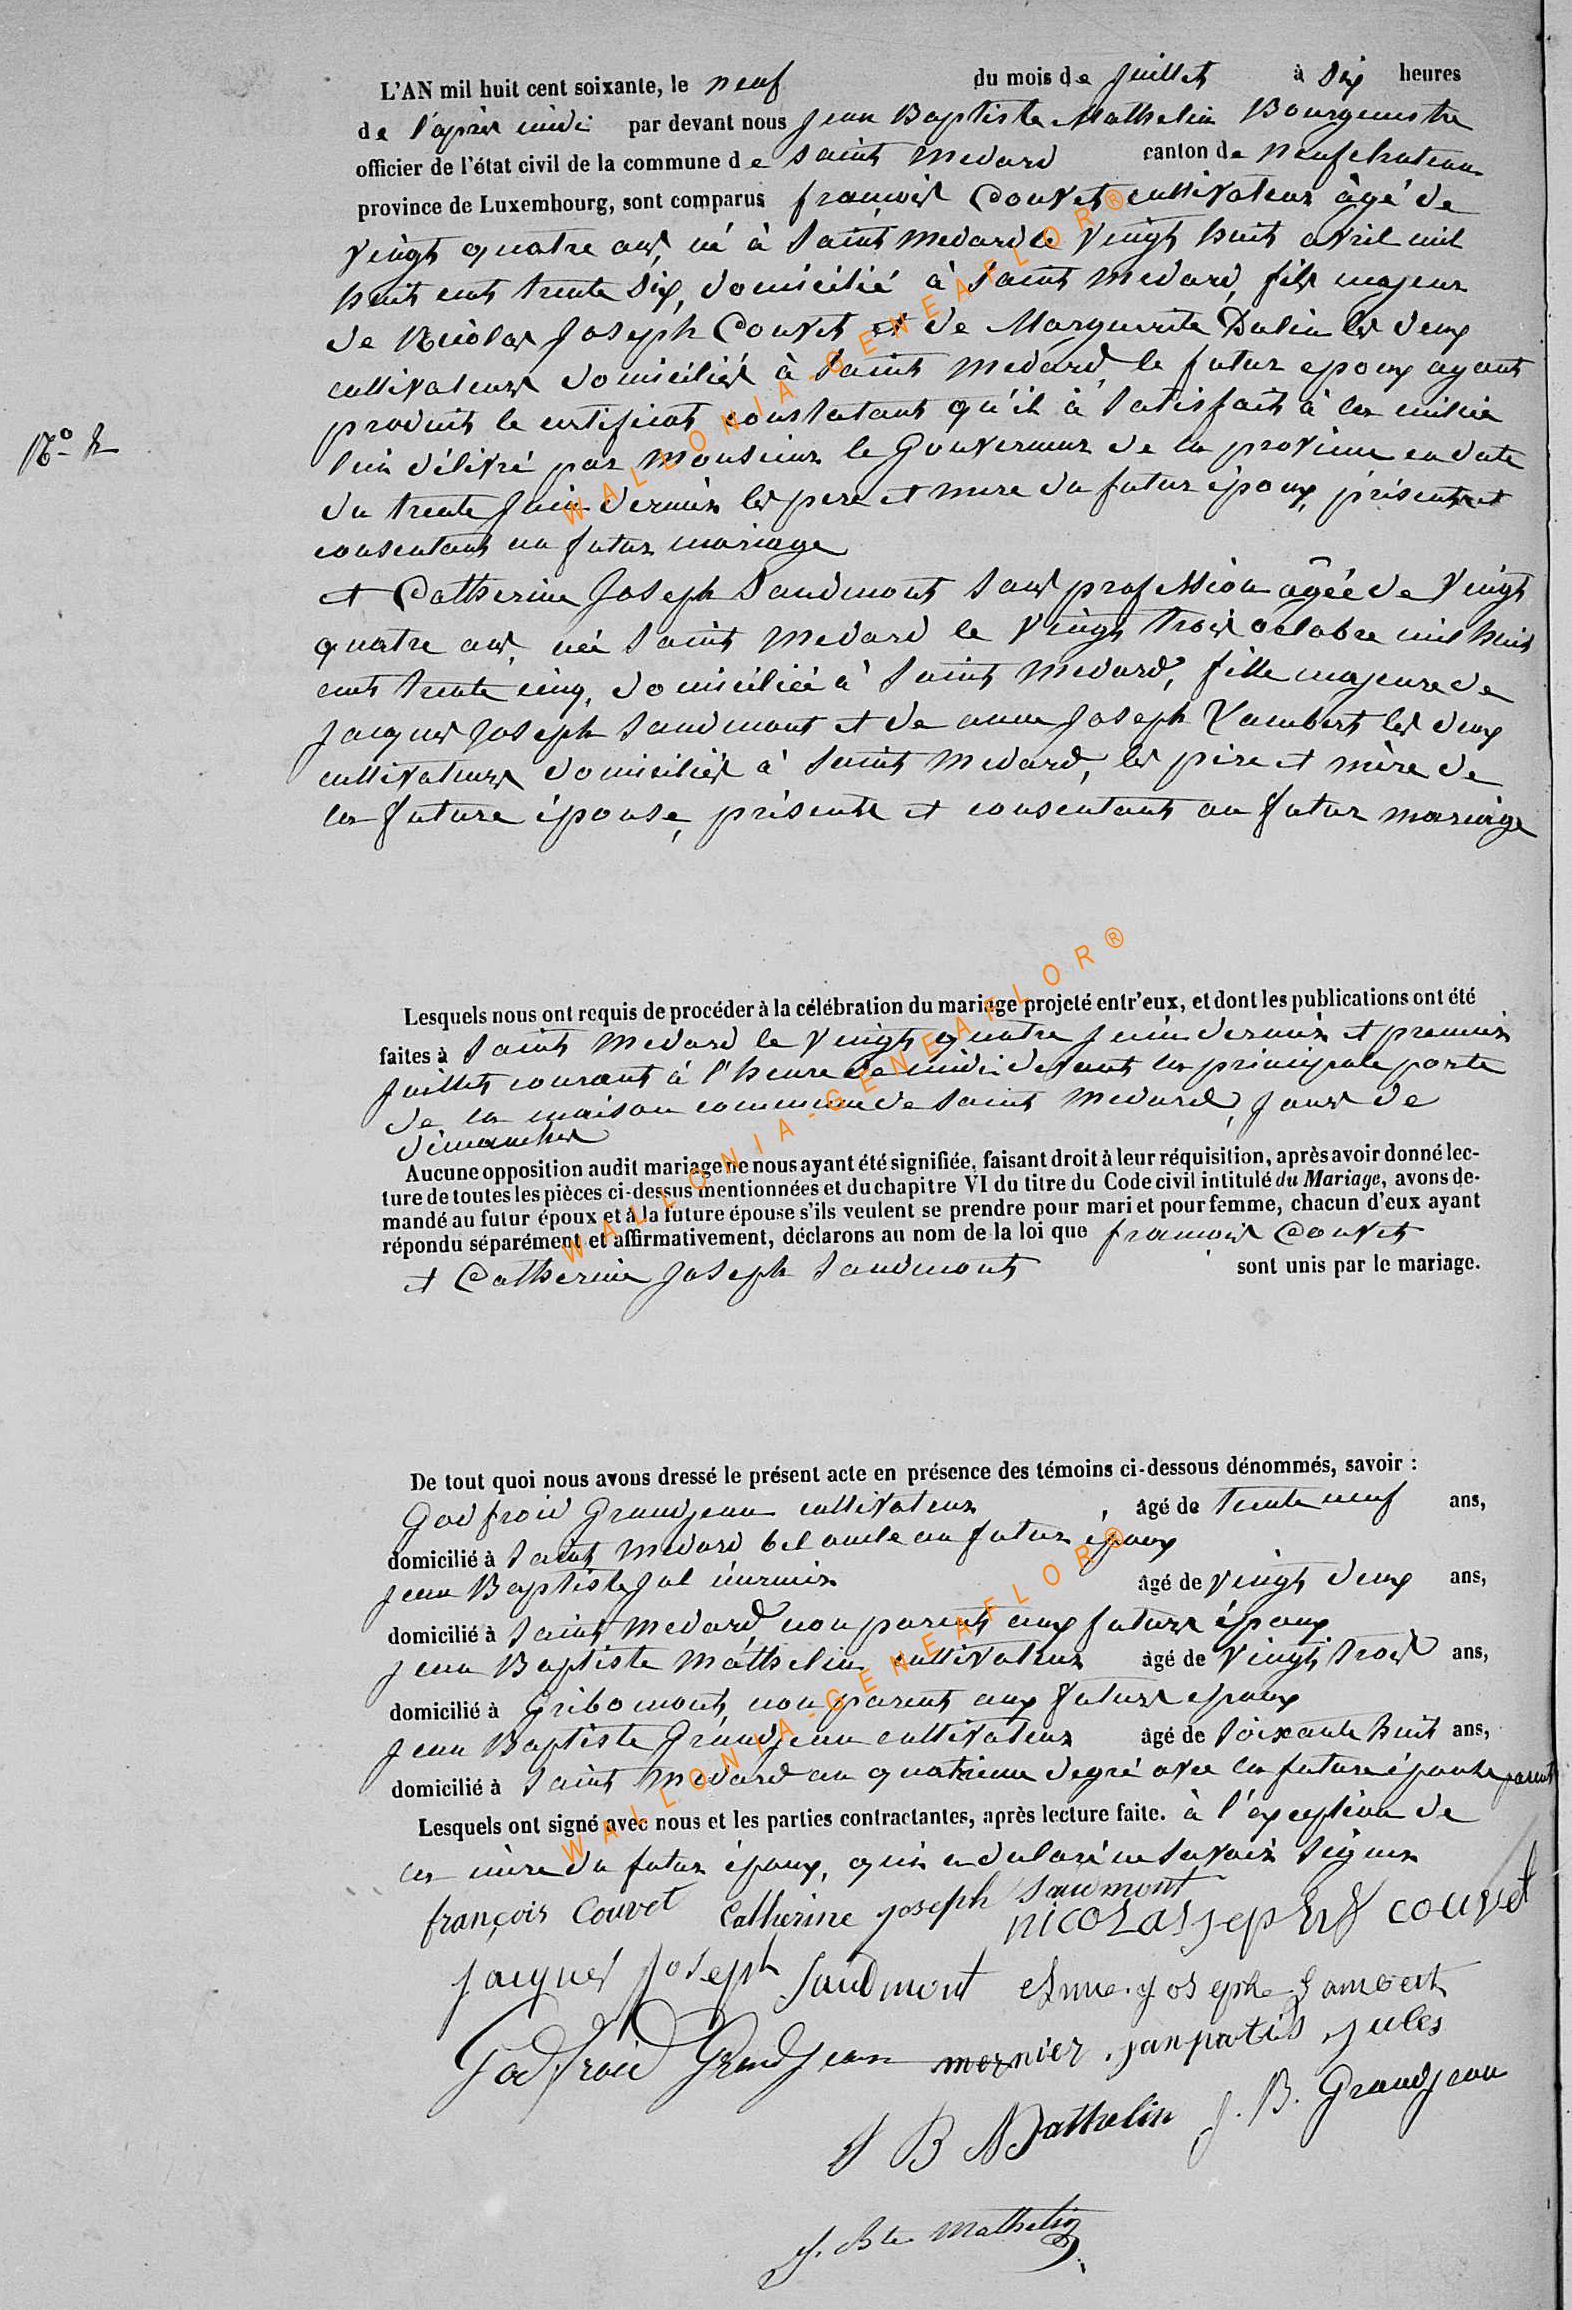 L'AN mil huit cent soixante, le neuf du mois de Juillet à Six heures
de l'après midi par devant nous Jean Baptiste Mathelin Bourgmestre
officier de l'état civil de la commune de Saint Medard canton de Neufchateau
province de Luxembourg, sont comparus françois Couvet cultivateur âgé de
Vingt quatre ans, né à Saint Medard le Vingt huit avril mil
huit cent trente Six, domicilié à Saint Medard, fils majeur
de Nicolas Joseph Couvet et de Marguerite Dulin les deux
cultivateurs domiciliés à Saint Medard, le futur epoux ayant
produit le certificat constatant qu'il à Satisfait à la milice
lui délivré par Monsieur le Gouverneur de la province en date
N° 2
du trente Juin dernier les pere et mere du futur époux, présents et
consentant au futur mariage
et Catherine Joseph Saudmont Sans profession âgée de Vingt
quatre ans, née Saint Medard le Vingt trois octobre mil huit
cent trente cinq, domiciliée à Saint Medard, fille majeure de
Jacques Joseph Saudmont et de anne Joseph Lambert les deux
cultivateurs domiciliés à Saint Medard, les père et mère de
la future épouse, présents et consentant au futur mariage
Lesquels nous ont requis de procéder à la célébration du mariage projeté entr'eux, et dont les publications ont été
faites à Saint Medard le Vingt quatre Juin dernier et premier
Juillet courant à l'heure de midi devant la principale porte
de la maison commune de Saint Medard, Jours de
dimanches
Aucune opposition audit mariage ne nous ayant été signifiée, faisant droit à leur réquisition, après avoir donné lec-
ture de toutes les pièces ci-dessus mentionnées et du chapitre VI du titre du Code civil intitulé du Mariage, avons de-
mandé au futur époux et à la future épouse s'ils veulent se prendre pour mari et pour femme, chacun d'eux ayant
répondu séparément et affirmativement, déclarons au nom de la loi que françois Couvet
et Catherine Joseph Saudmont sont unis par le mariage.
De tout quoi nous avons dressé le présent acte en présence des témoins ci-dessous dénommés, savoir :
Godfroid Grandjean cultivateur, âgé de Trente neuf ans,
domicilié à Saint Medard bel oncle au futur époux
Jean Baptiste Jul âgé de Vingt deux ans,
domicilié à Saint Medard, non parent aux futurs époux
Jean Baptiste Mathelin cultivateur âgé de Vingt trois ans,
domicilié à Gribomont, non parent aux futurs epoux
Jean Baptiste Grandjean cultivateur âgé de Soixante huit ans,
domicilié à Saint Medard au quatrieme degré avec la future épouse parent
Lesquels ont signé avec nous et les parties contractantes, après lecture faite. à l'exception de
la mère du futur époux, qui a declaré ne Savoir Signer
françois Couvet Catherine joseph Saudmont nicolas jepsh couvet
Jacques Joseph Saudmont Anne. joseph Lambert
Godfroid Grandjean mernier. janpatis jules
J B Mathelin J. B. Grandjean
J. Bte Mathelin
WALLONIA-GENEAFLOR®
WALLONIA-GENEAFLOR®
WALLONIA-GENEAFLOR®